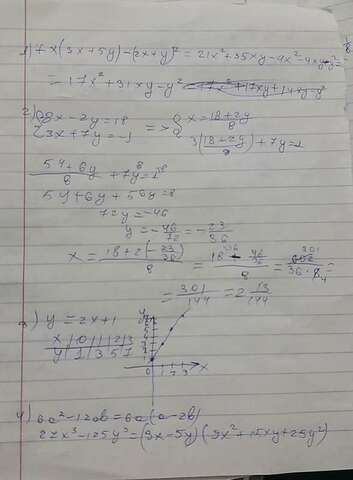 1) 7x(3x+5y)-(2x+y)² = 21x²+35xy-4x²-4xy-y²=
= 17x²+31xy-y²
2) { 8x-2y=18
{ 3x+7y=-1
=> { x = (18+2y)/8
{ 3(18+2y)/8 + 7y=-1
(54+6y)/8 + 7y = -1
54+6y+56y=-8
72y=-46
y = -46/72 = -23/36
x = (18+2(-23/36))/8 = (18 - 46/36)/8 = 602/(36·8) =
= 301/144 = 2 13/144
3) y=2x+1
x | 0 | 1 | 2 | 3
y | 1 | 3 | 5 | 7
y
x
0 1 2 3
4) 6a²-12ab=6a(a-2b)
27x³-125y³=(3x-5y)(9x²+15xy+25y²)